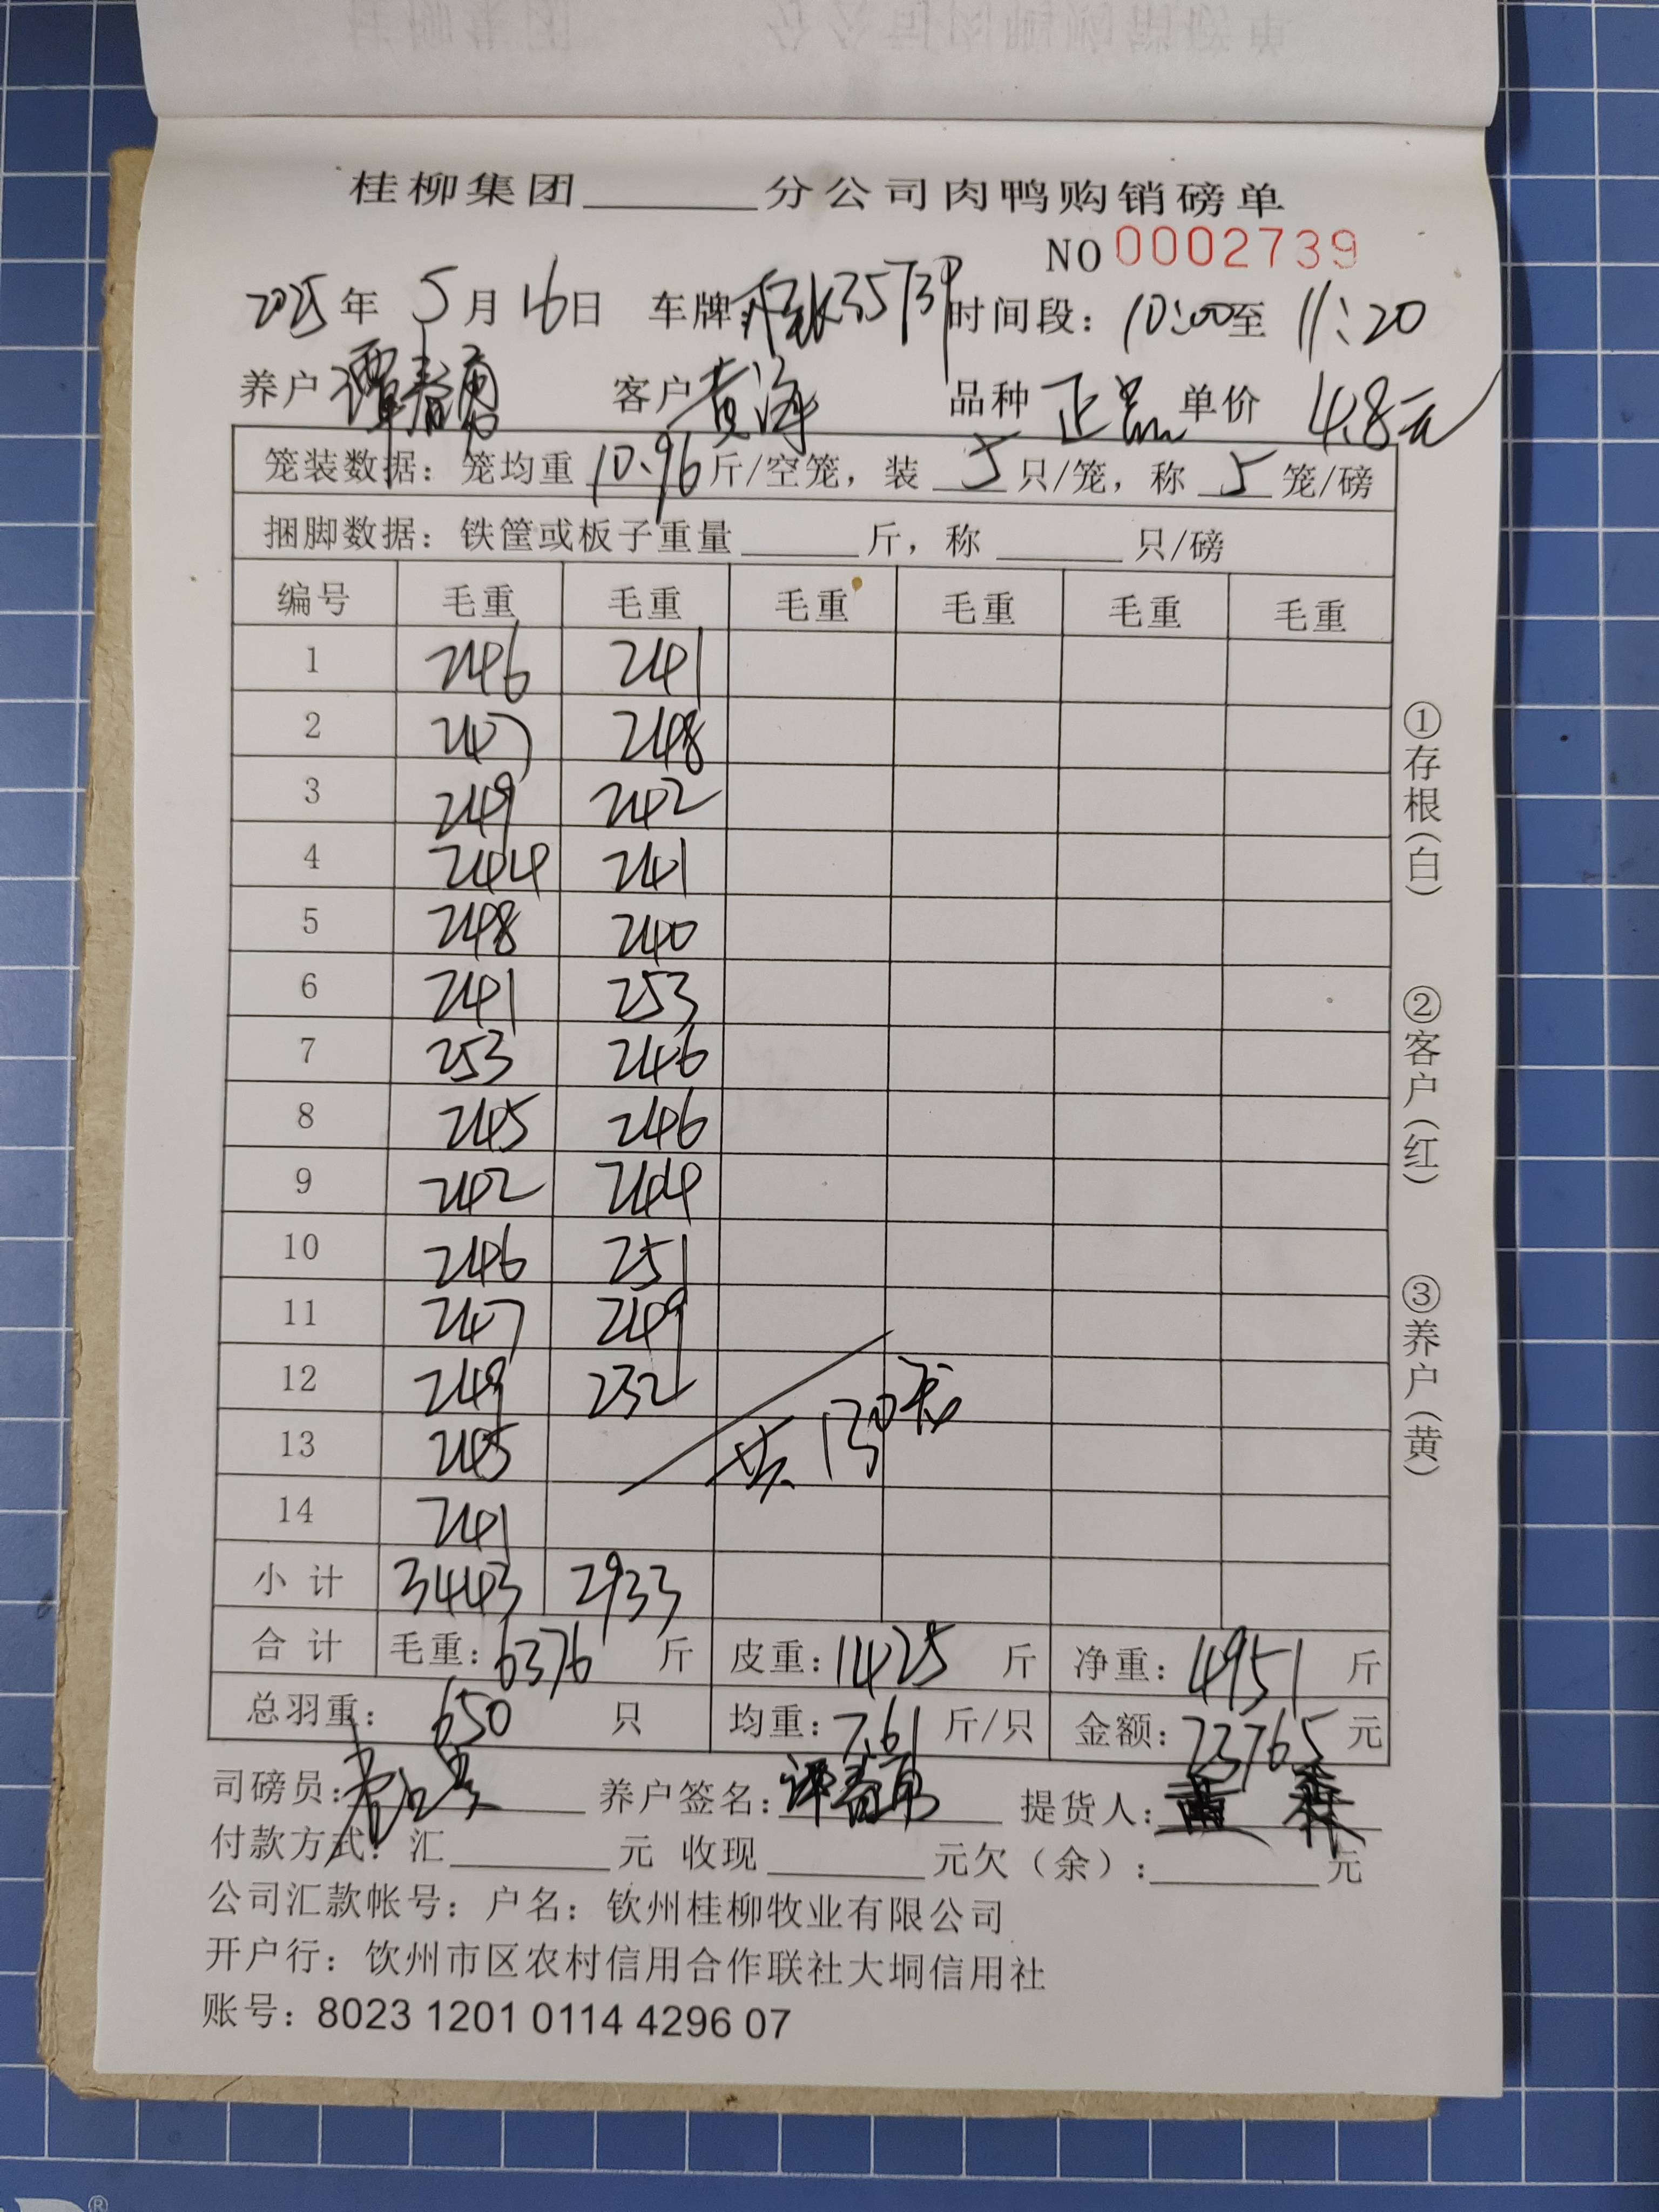 桂柳集团______分公司肉鸭购销磅单
NO 0002739
2025年 5月 16日 车牌: 35739 时间段: 10:00至 11:20
养户 谭春勇 客户 黄海 品种 正品 单价 4.8元
笼装数据: 笼均重 10.96 斤/空笼, 装 5 只/笼, 称 5 笼/磅
捆脚数据: 铁筐或板子重量 ______ 斤, 称 ______ 只/磅
编号 毛重 毛重 毛重 毛重 毛重 毛重
1 246 241
2 247 248
3 249 242
4 244 241
5 248 240
6 241 253
7 253 246
8 245 246
9 242 244
10 246 251
11 247 249
12 249 232
13 245 共130笼
14 241
小计 3443 2933
合计 毛重: 6376 斤 皮重: 1425 斤 净重: 4951 斤
总羽重: 650 只 均重: 7.61 斤/只 金额: 23765 元
司磅员: 养户签名: 谭春勇 提货人:
付款方式: 汇______元 收现______元欠(余):______元
公司汇款帐号: 户名: 钦州桂柳牧业有限公司
开户行: 钦州市区农村信用合作联社大垌信用社
账号: 8023 1201 0114 4296 07
①存根(白)
②客户(红)
③养户(黄)